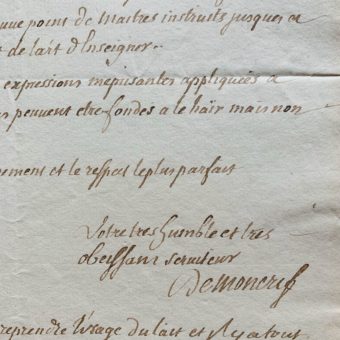 point de maitres instruits jusques a
de l'art d'Enseigner.
expressions meprisantes appliquées a
peuvent etre fondés a le haïr mais non
et le respect le plus parfait
Votre tres humble et tres
obeissant serviteur
Demoncrif
reprendre l'usage du lait et